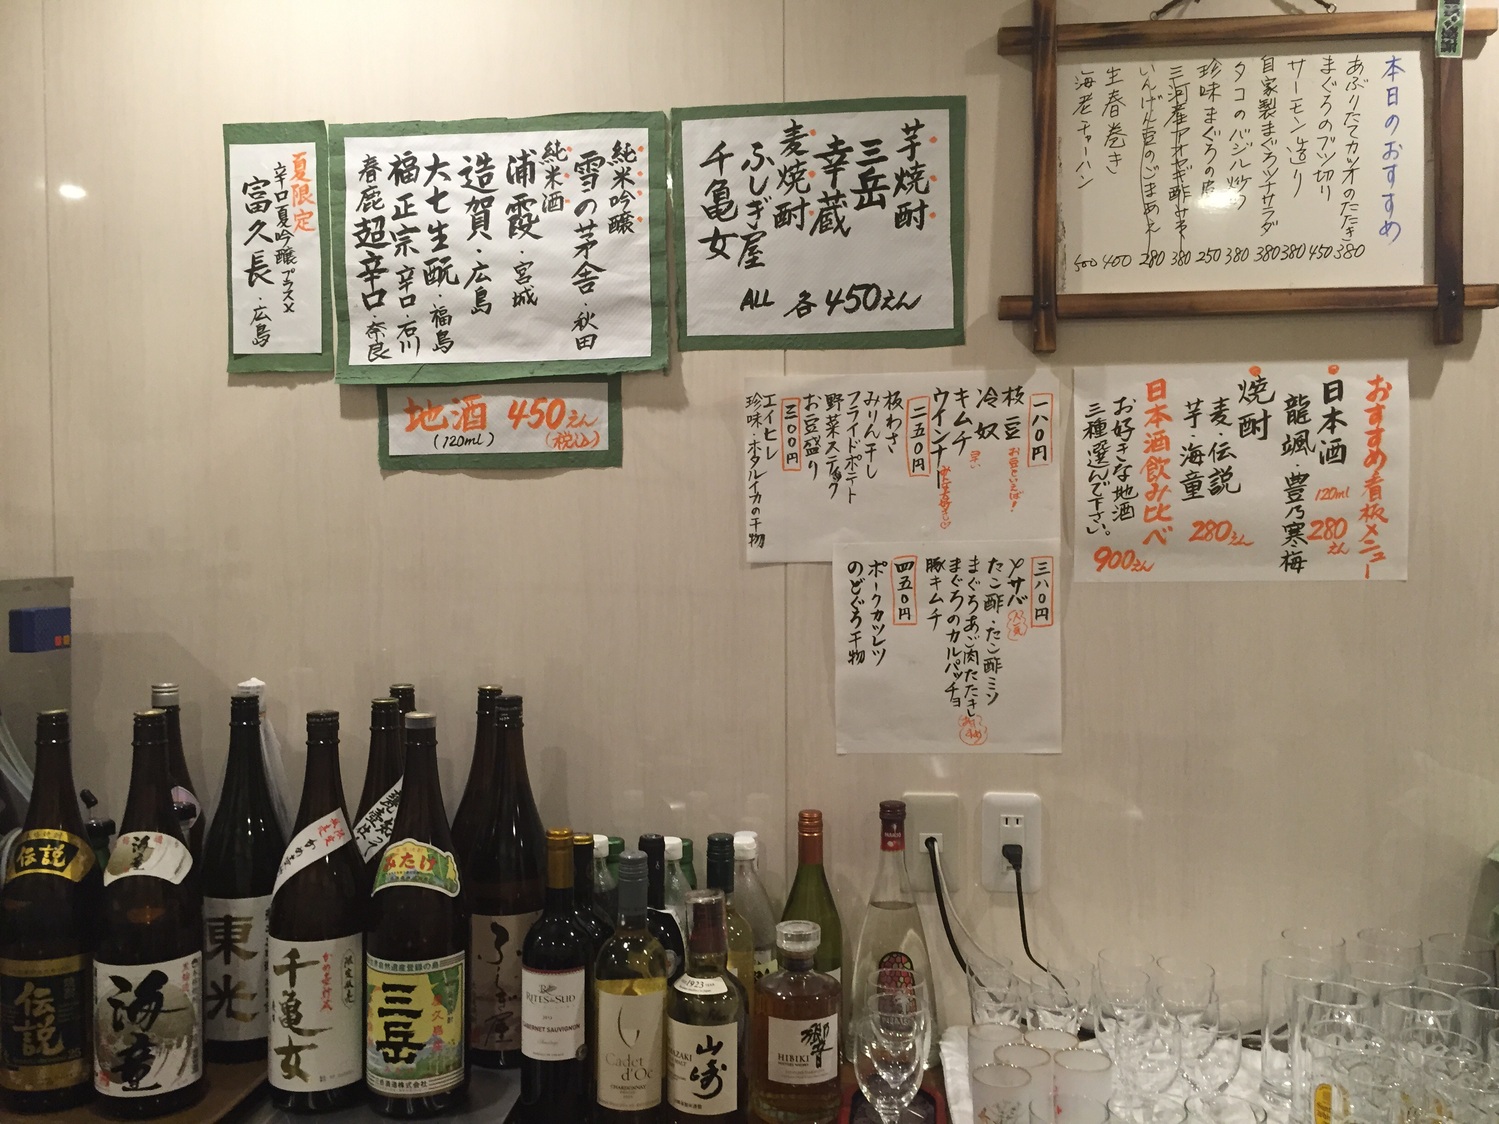 夏限定
辛口夏吟醸プラスメ
富久長・広島
純米吟醸
雪の茅舎・秋田
純米酒
浦霞・宮城
造賀・広島
大七生酛・福島
福正宗 辛口・石川
春鹿 超辛口・奈良
地酒 450えん
(120ml) (税込)
芋焼酎
三岳
幸蔵
麦焼酎
ふしぎ屋
千亀女
ALL 各450えん
本日のおすすめ
あぶりたてカツオのたたき 380
まぐろのブツ切り 450
サーモン造り 380
自家製まぐろツナサラダ 380
タコのバジル炒め 380
珍味まぐろの 250
三河産アオヤギ酢みそ 380
いんげん豆のごまあえ 280
生春巻き 400
海老チャーハン 500
一八〇円
枝豆 お豆といえば!
冷奴
キムチ 辛い
ウインナー みんな大好き
二五〇円
板わさ
みりん干し
フライドポテト
野菜スティック
お豆盛り
三〇〇円
エイヒレ
珍味・ホタルイカの干物
三八〇円
〆サバ 人気
たこ酢・たこ酢ミソ
まぐろあご肉たたき
まぐろのカルパッチョ
豚キムチ
四五〇円
ポークカツレツ
のどぐろ干物
おすすめ看板メニュー
日本酒 120ml 280えん
龍颯・豊乃寒梅
焼酎
麦・伝説
芋・海童 280えん
日本酒飲み比べ
お好きな地酒
三種選んで下さい。 900えん
伝説
伝説
海童
海童
東光
千亀女
みたけ
三岳
ふしぎ屋
RITES du SUD
CABERNET SAUVIGNON
Cadet d'Oc
CHARDONNAY
1923
山崎
響
HIBIKI